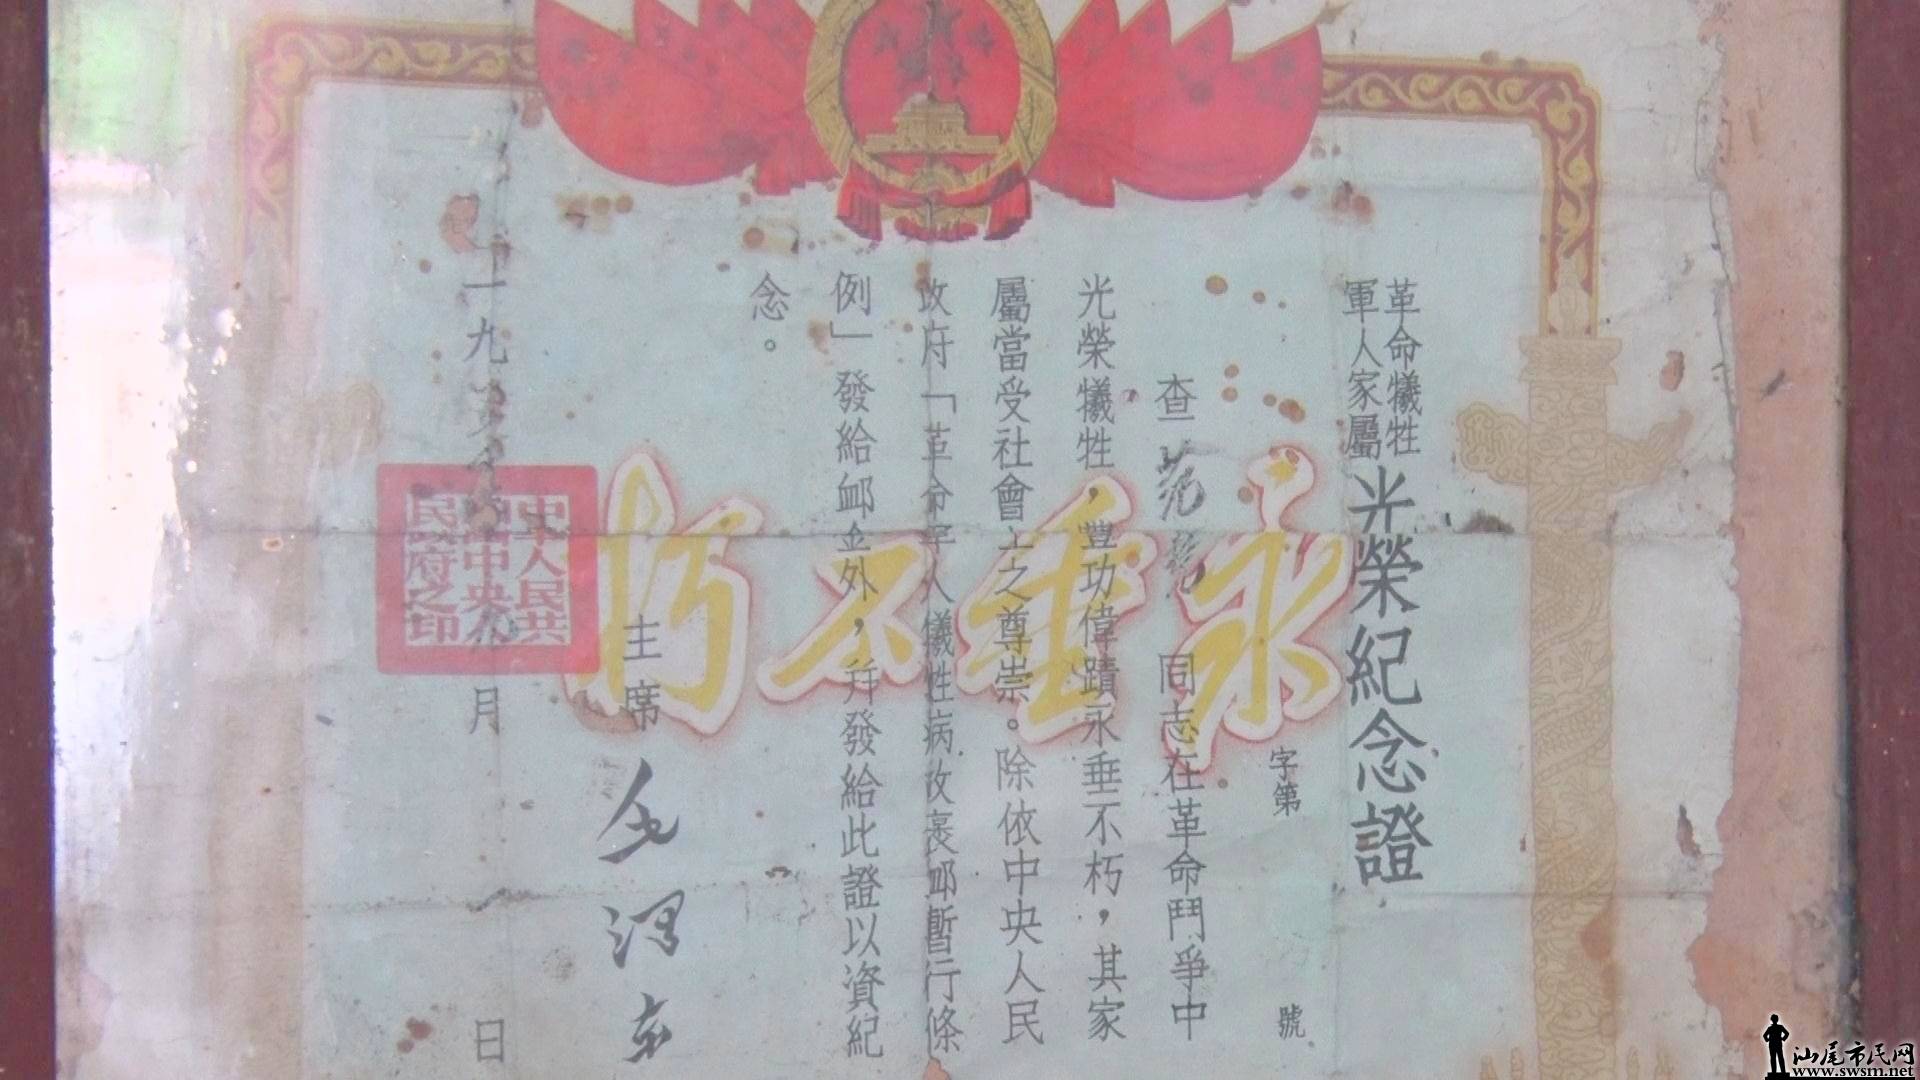 革命犧牲
軍人家屬
光榮紀念證
字第 號
查 同志在革命鬥爭中
光榮犧牲，豐功偉蹟永垂不朽，其家
屬當受社會上之尊崇。除依中央人民
政府「革命軍人犧牲病故褒卹暫行條
例」發給卹金外，幷發給此證以資紀
念。
主席 毛澤東
一九 月 日
永垂不朽
中華人民共
和國中央人
民政府之印
汕尾市民网
www.swsm.net